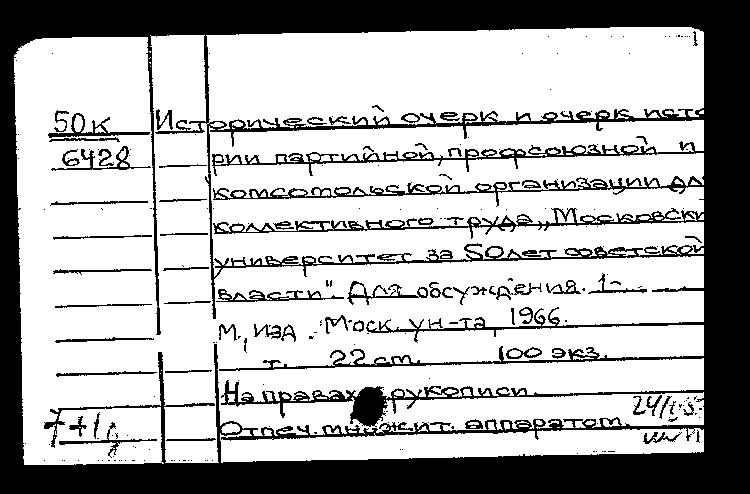 1
50к Исторический очерк и очерк исто
6428 рии партийной, профсоюзной и
комсомольской организации дл
коллективного труда „Московски
университет за 50 лет советской
власти". Для обсуждения. 1-
М., Изд. Моск. ун-та, 1966.
т. 22 cm. 100 экз.
На правах рукописи.
24/
7+1д Отпеч. множит. аппаратом.